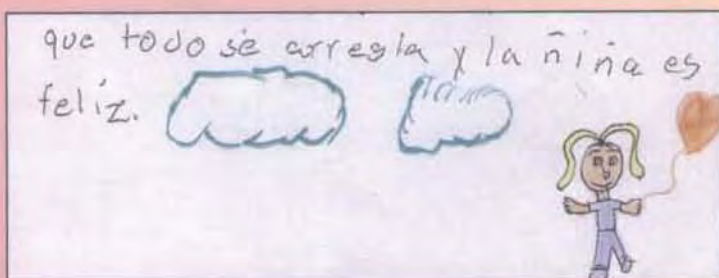 que todo se arregla y la ñiña es
feliz.